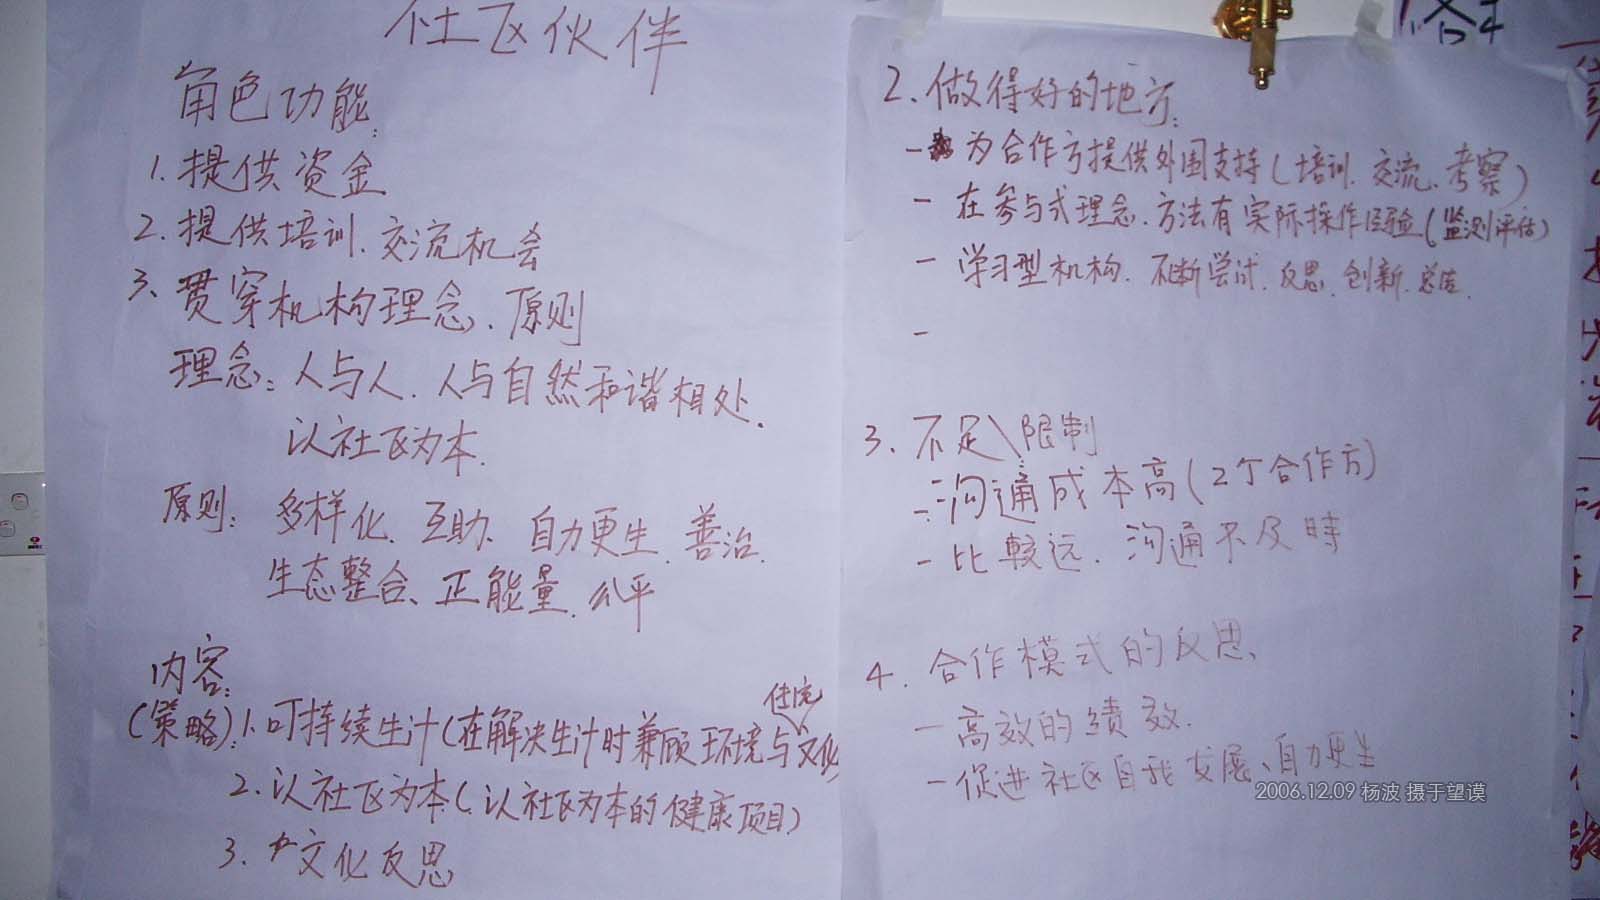 社区伙伴
角色功能:
1. 提供资金
2. 提供培训、交流机会
3、贯穿机构理念、原则
理念: 人与人、人与自然和谐相处.
以社区为本.
原则: 多样化、互助、自力更生、善治、
生态整合、正能量、公平
内容:
(策略): 1. 可持续生计(在解决生计时兼顾环境与传统文化)
2. 以社区为本(以社区为本的健康项目)
3. 文化反思
2. 做得好的地方:
- 为合作方提供外围支持(培训、交流、考察)
- 在参与式理念、方法有实际操作经验(监测评估)
- 学习型机构、不断尝试、反思、创新、总结.
-
3. 不足\限制
- 沟通成本高(2个合作方)
- 比較远、沟通不及時
4. 合作模式的反思、
- 高效的績效.
- 促进社区自我发展、自力更生
2006.12.09 杨波 摄于望谟